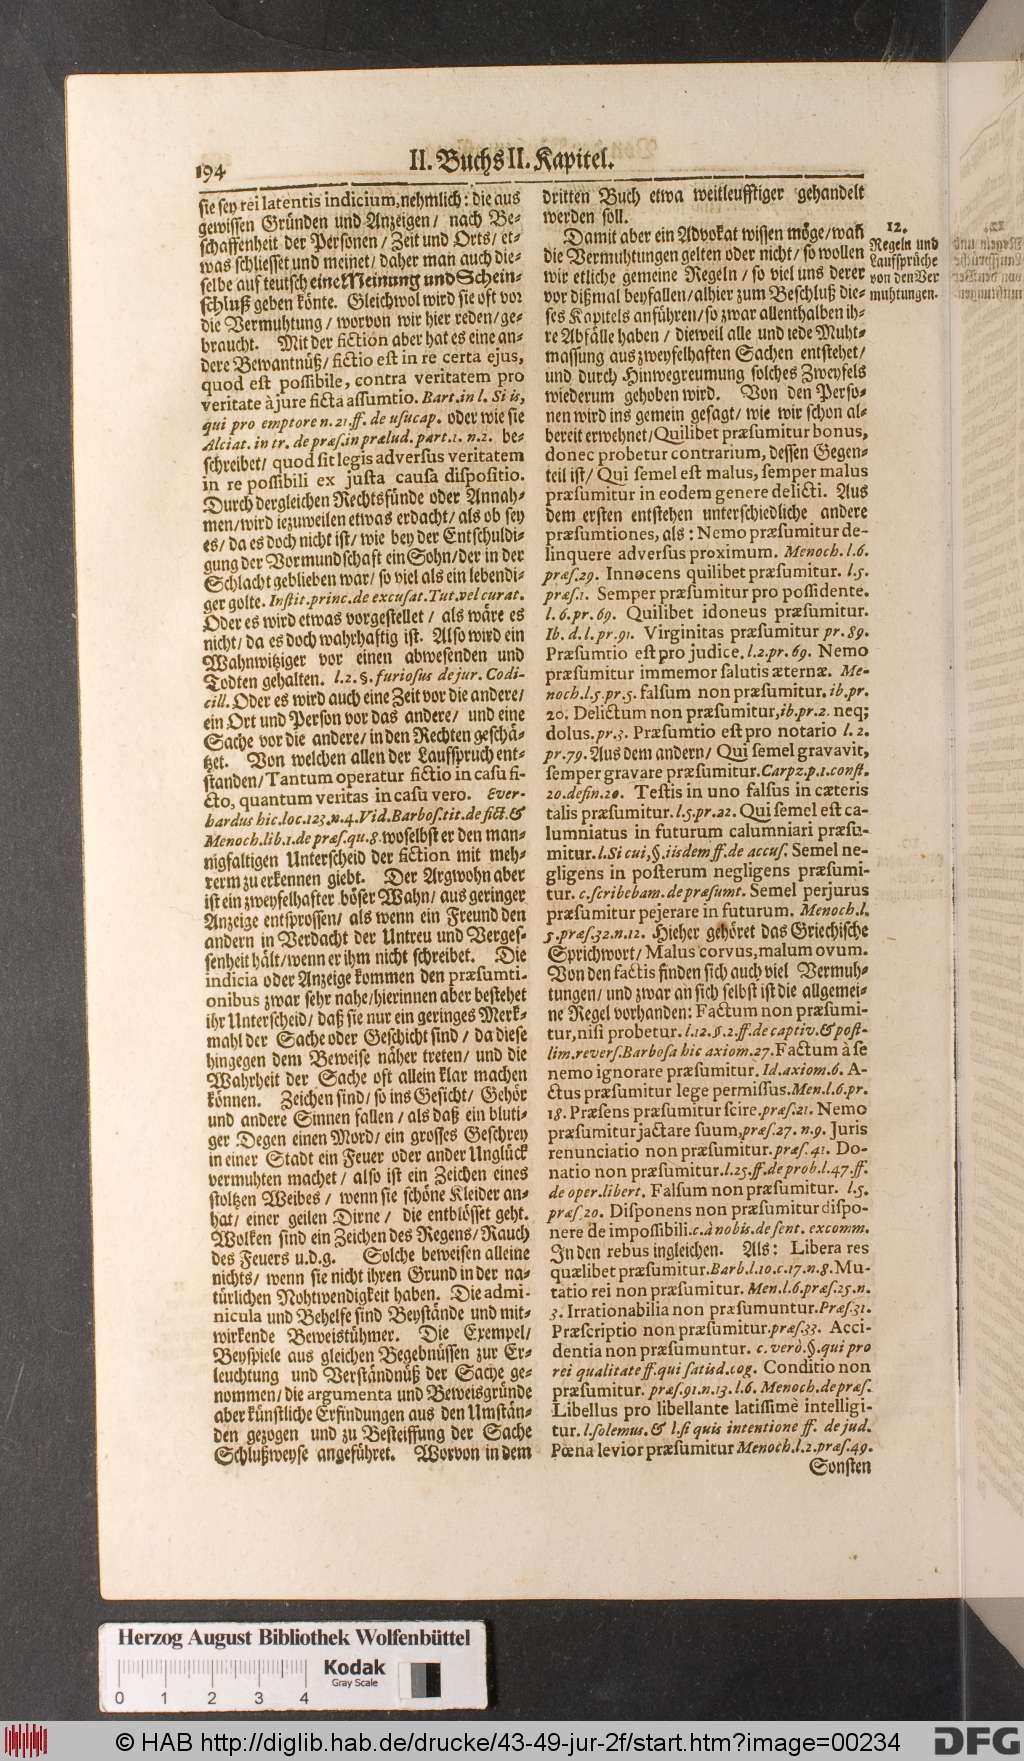 194
II. Buchs II. Kapitel.
sie sey rei latentis indicium, nehmlich: die aus
gewissen Gründen und Anzeigen/ nach Be-
schaffenheit der Personen/ Zeit und Orts/ et-
was schliesset und meinet/ daher man auch die-
selbe auf teutsch eine Meinung und Schein-
schluß geben könte. Gleichwol wird sie oft vor
die Vermuhtung/ worvon wir hier reden/ ge-
braucht. Mit der fiction aber hat es eine an-
dere Bewantnüß/ fictio est in re certa ejus,
quod est possibile, contra veritatem pro
veritate à jure ficta assumtio. Bart. in l. Si is,
qui pro emptore n. 21. ff. de usucap. oder wie sie
Alciat. in tr. de præs. in prælud. part. 1. n. 2. be-
schreibet/ quod sit legis adversus veritatem
in re possibili ex justa causa dispositio.
Durch dergleichen Rechtsfünde oder Annah-
men/ wird iezuweilen etwas erdacht/ als ob sey
es/ da es doch nicht ist/ wie bey der Entschuldi-
gung der Vormundschaft ein Sohn/ der in der
Schlacht geblieben war/ so viel als ein lebendi-
ger golte. Instit. princ. de excusat. Tut. vel curat.
Oder es wird etwas vorgestellet/ als wäre es
nicht/ da es doch wahrhaftig ist. Also wird ein
Wahnwitziger vor einen abwesenden und
Todten gehalten. l. 2. §. furiosus de jur. Codi-
cill. Oder es wird auch eine Zeit vor die andere/
ein Ort und Person vor das andere/ und eine
Sache vor die andere/ in den Rechten geschä-
tzet. Von welchen allen der Lauffspruch ent-
standen/ Tantum operatur fictio in casu fi-
cto, quantum veritas in casu vero. Ever-
hardus hic loc. 123. n. 4. Vid. Barbos. tit. de fict. &
Menoch. lib. 1. de præs. qu. 8. woselbst er den man-
nigfaltigen Unterscheid der fiction mit meh-
rerm zu erkennen giebt. Der Argwohn aber
ist ein zweyfelhafter böser Wahn/ aus geringer
Anzeige entsprossen/ als wenn ein Freund den
andern in Verdacht der Untreu und Verges-
senheit hält/ wenn er ihm nicht schreibet. Die
indicia oder Anzeige kommen den præsumti-
onibus zwar sehr nahe/ hierinnen aber bestehet
ihr Unterscheid/ daß sie nur ein geringes Merk-
mahl der Sache oder Geschicht sind/ da diese
hingegen dem Beweise näher treten/ und die
Wahrheit der Sache oft allein klar machen
können. Zeichen sind/ so ins Gesicht/ Gehör
und andere Sinnen fallen/ als daß ein bluti-
ger Degen einen Mord/ ein grosses Geschrey
in einer Stadt ein Feuer oder ander Unglück
vermuhten machet/ also ist ein Zeichen eines
stoltzen Weibes/ wenn sie schöne Kleider an-
hat/ einer geilen Dirne/ die entblösset geht.
Wolken sind ein Zeichen des Regens/ Rauch
des Feuers u.d.g. Solche beweisen alleine
nichts/ wenn sie nicht ihren Grund in der na-
türlichen Nohtwendigkeit haben. Die admi-
nicula und Behelfe sind Beystände und mit-
wirkende Beweistühmer. Die Exempel/
Beyspiele aus gleichen Begebnüssen zur Er-
leuchtung und Verständnüß der Sache ge-
nommen/ die argumenta und Beweisgründe
aber künstliche Erfindungen aus den Umstän-
den gezogen und zu Besteiffung der Sache
Schlußweyse angeführet. Worvon in dem
dritten Buch etwa weitleufftiger gehandelt
werden soll.
Damit aber ein Advokat wissen möge/ wañ
die Vermuhtungen gelten oder nicht/ so wollen
wir etliche gemeine Regeln/ so viel uns derer
vor dißmal beyfallen/ alhier zum Beschluß die-
ses Kapitels anführen/ so zwar allenthalben ih-
re Abfälle haben/ dieweil alle und iede Muht-
massung aus zweyfelhaften Sachen entstehet/
und durch Hinwegreumung solches Zweyfels
wiederum gehoben wird. Von den Perso-
nen wird ins gemein gesagt/ wie wir schon al-
bereit erwehnet/ Quilibet præsumitur bonus,
donec probetur contrarium, dessen Gegen-
teil ist/ Qui semel est malus, semper malus
præsumitur in eodem genere delicti. Aus
dem ersten entstehen unterschiedliche andere
præsumtiones, als: Nemo præsumitur de-
linquere adversus proximum. Menoch. l. 6.
præs. 29. Innocens quilibet præsumitur. l. 5.
præs. 1. Semper præsumitur pro possidente.
l. 6. pr. 69. Quilibet idoneus præsumitur.
Ib. d. l. pr. 91. Virginitas præsumitur pr. 89.
Præsumtio est pro judice. l. 2. pr. 69. Nemo
præsumitur immemor salutis æternæ. Me-
noch. l. 5. pr. 5. falsum non præsumitur. ib. pr.
20. Delictum non præsumitur, ib. pr. 2. neq;
dolus. pr. 3. Præsumtio est pro notario l. 2.
pr. 79. Aus dem andern/ Qui semel gravavit,
semper gravare præsumitur. Carpz. p. 1. const.
20. defin. 20. Testis in uno falsus in cæteris
talis præsumitur. l. 5. pr. 22. Qui semel est ca-
lumniatus in futurum calumniari præsu-
mitur. l. Si cui, §. iisdem ff. de accus. Semel ne-
gligens in posterum negligens præsumi-
tur. c. scribebam. de præsumt. Semel perjurus
præsumitur pejerare in futurum. Menoch. l.
5. præs. 32. n. 12. Hieher gehöret das Griechische
Sprichwort/ Malus corvus, malum ovum.
Von den factis finden sich auch viel Vermuh-
tungen/ und zwar an sich selbst ist die allgemei-
ne Regel vorhanden: Factum non præsumi-
tur, nisi probetur. l. 12. §. 2. ff. de captiv. & post-
lim. revers. Barbosa hic axiom. 27. Factum à se
nemo ignorare præsumitur. Id. axiom. 6. A-
ctus præsumitur lege permissus. Men. l. 6. pr.
18. Præsens præsumitur scire. præs. 21. Nemo
præsumitur jactare suum, præs. 27. n. 9. Juris
renunciatio non præsumitur. præs. 41. Do-
natio non præsumitur. l. 25. ff. de prob. l. 47. ff.
de oper. libert. Falsum non præsumitur. l. 5.
præs. 20. Disponens non præsumitur dispo-
nere de impossibili. c. à nobis. de sent. excomm.
In den rebus ingleichen. Als: Libera res
quælibet præsumitur. Barb. l. 10. c. 17. n. 8. Mu-
tatio rei non præsumitur. Men. l. 6. præs. 25. n.
3. Irrationabilia non præsumuntur. Præs. 31.
Præscriptio non præsumitur. præs. 33. Acci-
dentia non præsumuntur. c. verò. §. qui pro
rei qualitate ff. qui satisd. cog. Conditio non
præsumitur. præs. 91. n. 13. l. 6. Menoch. de præs.
Libellus pro libellante latissimè intelligi-
tur. l. solemus. & l. si quis intentione ff. de jud.
Pœna levior præsumitur Menoch. l. 2. præs. 49.
Sonsten
12.
Regeln und
Lauffsprüche
von den Ver
muhtungen.
Herzog August Bibliothek Wolfenbüttel
Kodak
Gray Scale
0 1 2 3 4
© HAB http://diglib.hab.de/drucke/43-49-jur-2f/start.htm?image=00234
DFG